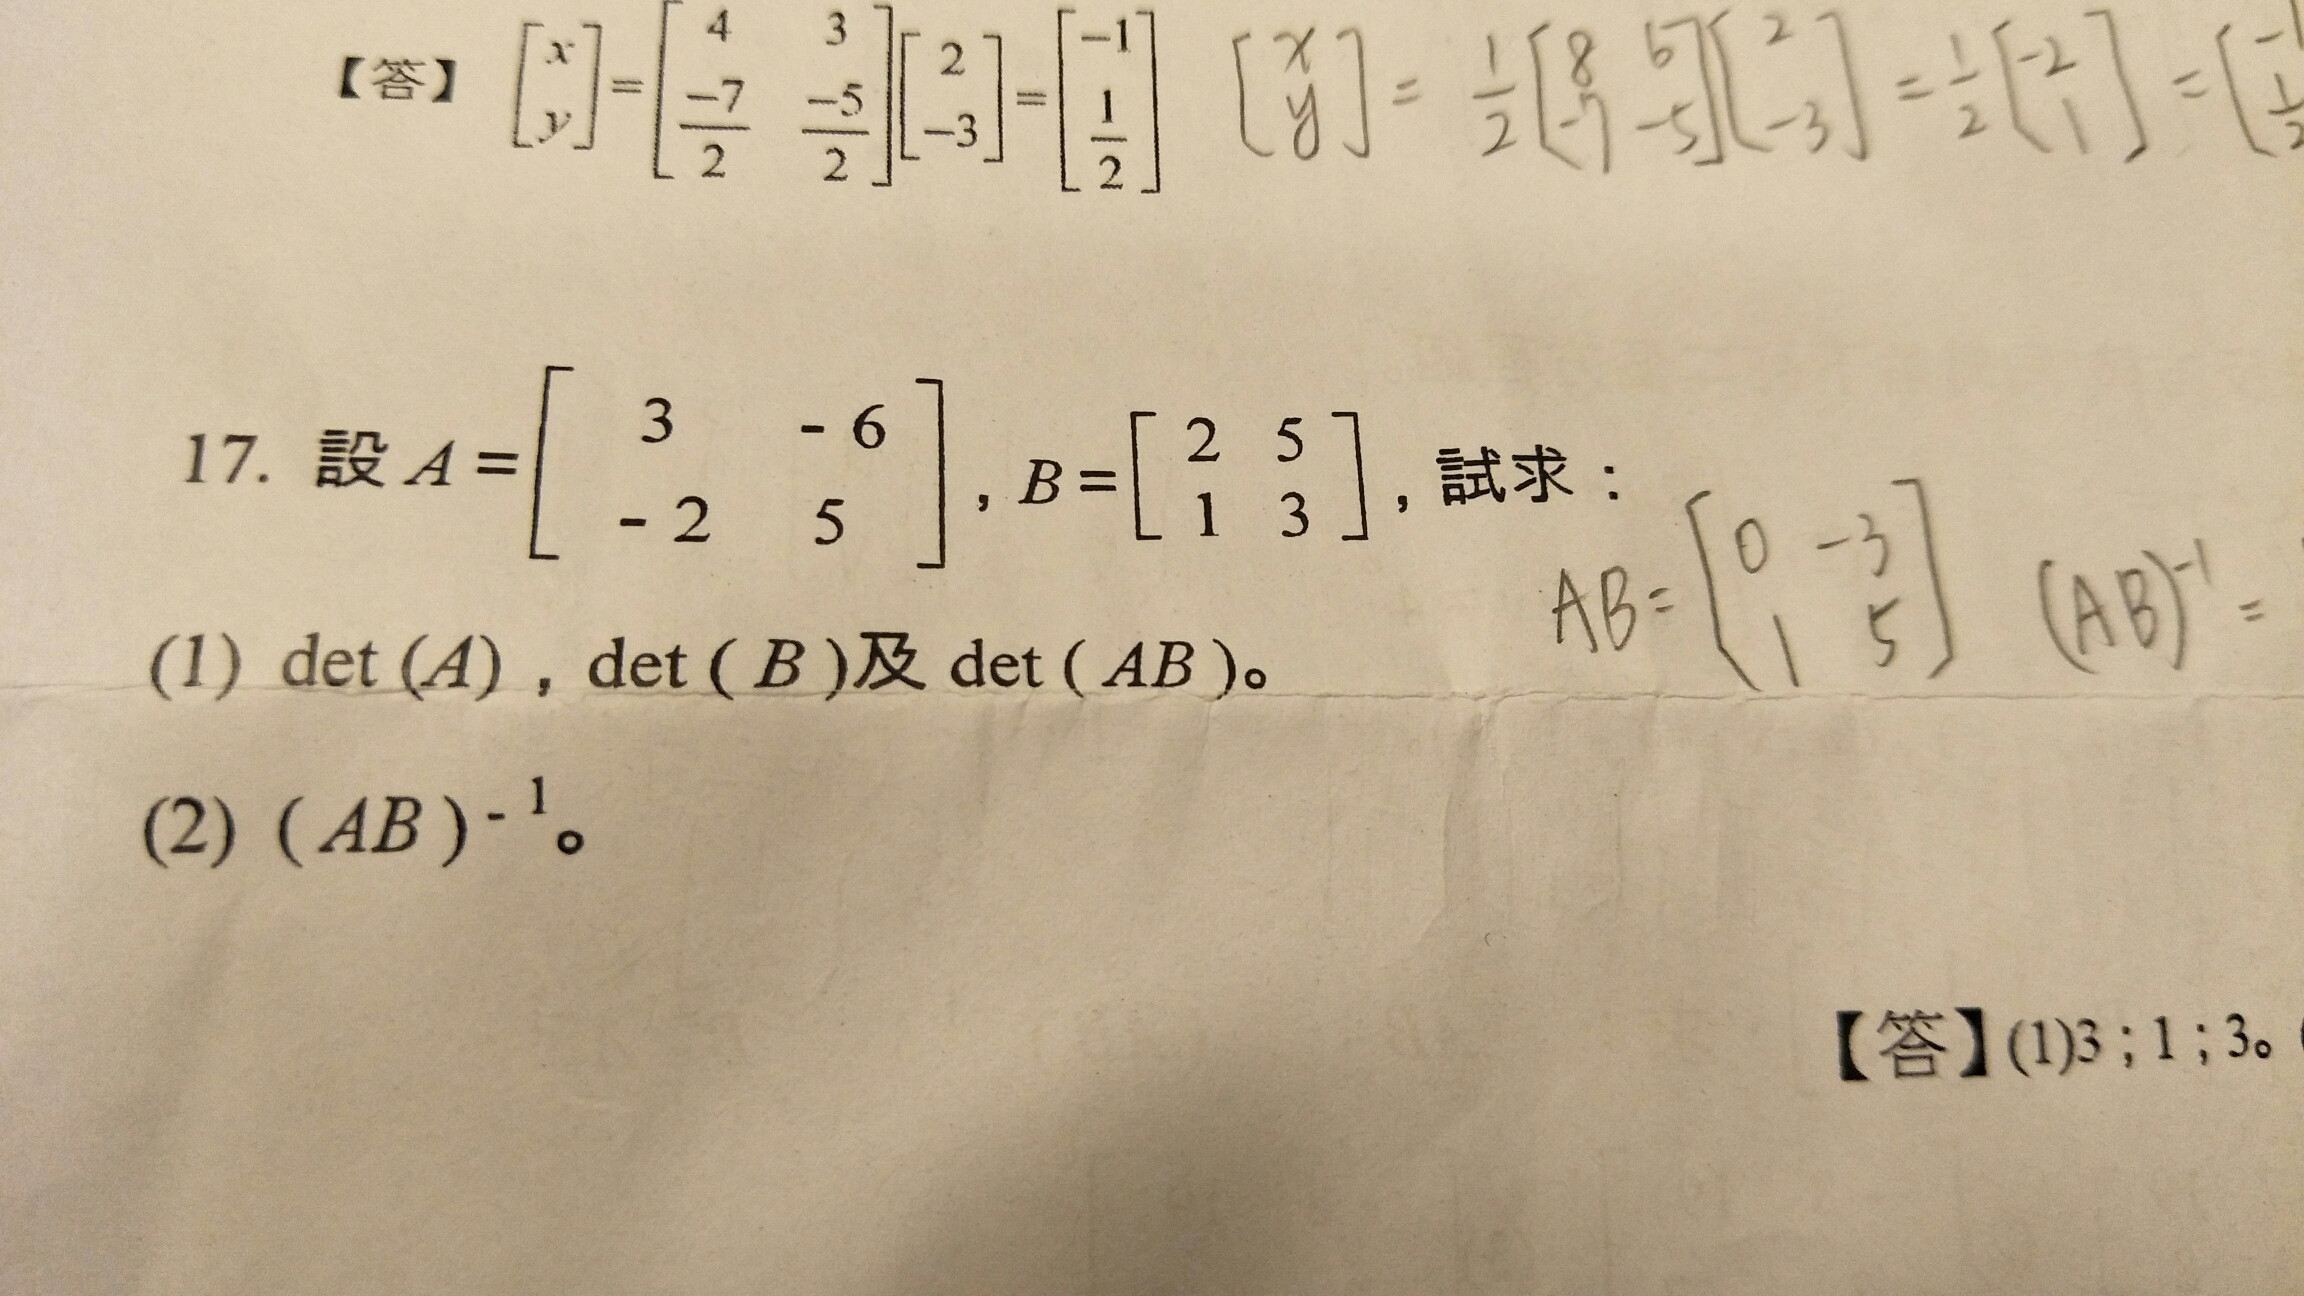 【答】 [x y] = [4 3 -7/2 -5/2][2 -3] = [-1 1/2] [x y] = 1/2 [8 6 -7 -5][2 -3] = 1/2 [-2 1] = [-1 1/2
17. 設 A = [3 -6 -2 5] , B = [2 5 1 3] , 試求：
AB = [0 -3 1 5] (AB)^-1 =
(1) det (A) , det ( B )及 det ( AB )。
(2) ( AB )^-1。
【答】(1)3 ; 1 ; 3。(